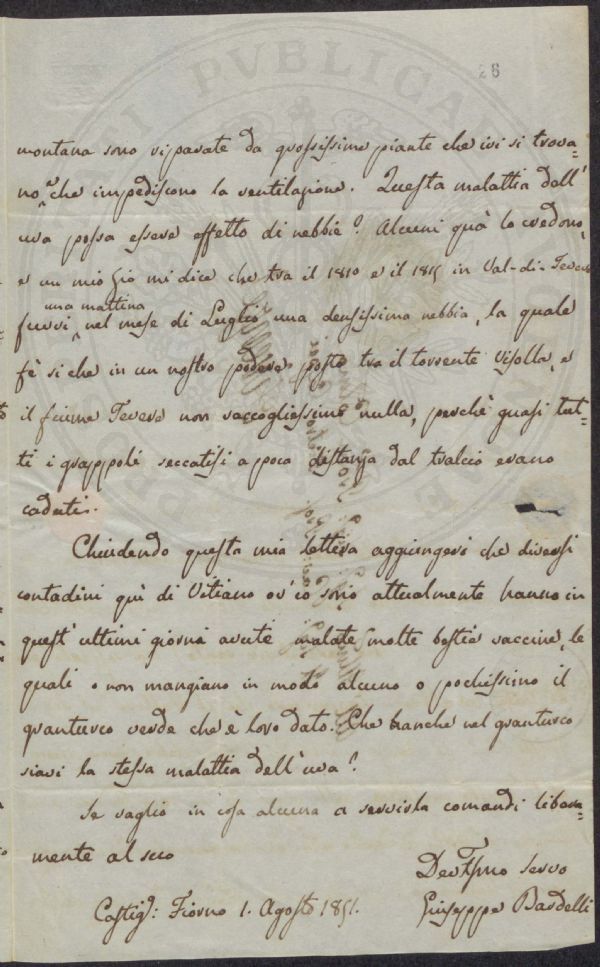 26
montana sono riparate da grossissime piante che ivi si trova=
no, e che impediscono la ventilazione. Questa malattia dell'
uva possa essere effetto di nebbie? Alcuni quà lo credono,
e un mio Zio mi dice che tra il 1810 e il 1815 in Val-di-Tevere
una mattina
fuvvi nel mese di Luglio una densissima nebbia, la quale
fè si che in un nostro podere posto tra il torrente Visolla, e
il fiume Tevere non raccogliessimo nulla, perchè quasi tut=
ti i grappoli seccatisi a poca distanza dal tralcio erano
caduti.
Chiudendo questa mia lettera aggiungerò che diversi
contadini quì di Vitiano ov'io sono attualmente hanno in
quest'ultimi giorni avute malate molte bestie vaccine, le
quali o non mangiano in modo alcuno o pochissimo il
granturco verde che è loro dato. Che hanche nel granturco
siavi la stessa malattia dell'uva?
Se vaglio in cosa alcuna a servirla comandi libera=
mente al suo
Dev Servo
Castigⁿ: Fiorno 1. Agosto 1851.
Giuseppe Bardelli